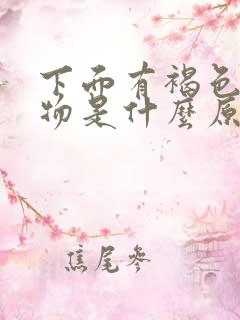 下面有褐色
物是什麼原
焦尾參